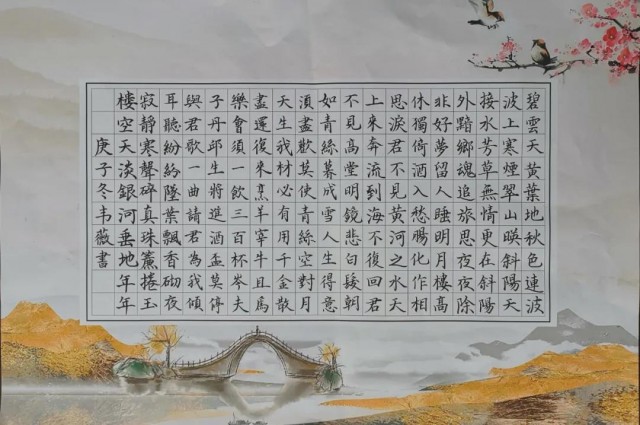 碧雲天黃葉地秋色連波
波上寒煙翠山暎斜陽天
接水芳草無情更在斜陽
外黯鄉魂追旅思夜夜除
非好夢留人睡明月樓高
休獨倚酒入愁腸化作相
思淚君不見黃河之水天
上來奔流到海不復回君
不見高堂明鏡悲白髮朝
如青絲暮成雪人生得意
須盡歡莫使青絲空對月
天生我材必有用千金散
盡還復來烹羊宰牛且爲
樂會須一飲三百杯岑夫
子丹邱生將進酒盃莫停
與君歌一曲請君為我傾
耳聽紛紛墜葉飄香砌夜
寂靜寒聲碎真珠簾捲玉
樓空天淡銀河垂地年年
庚子冬韦薇書